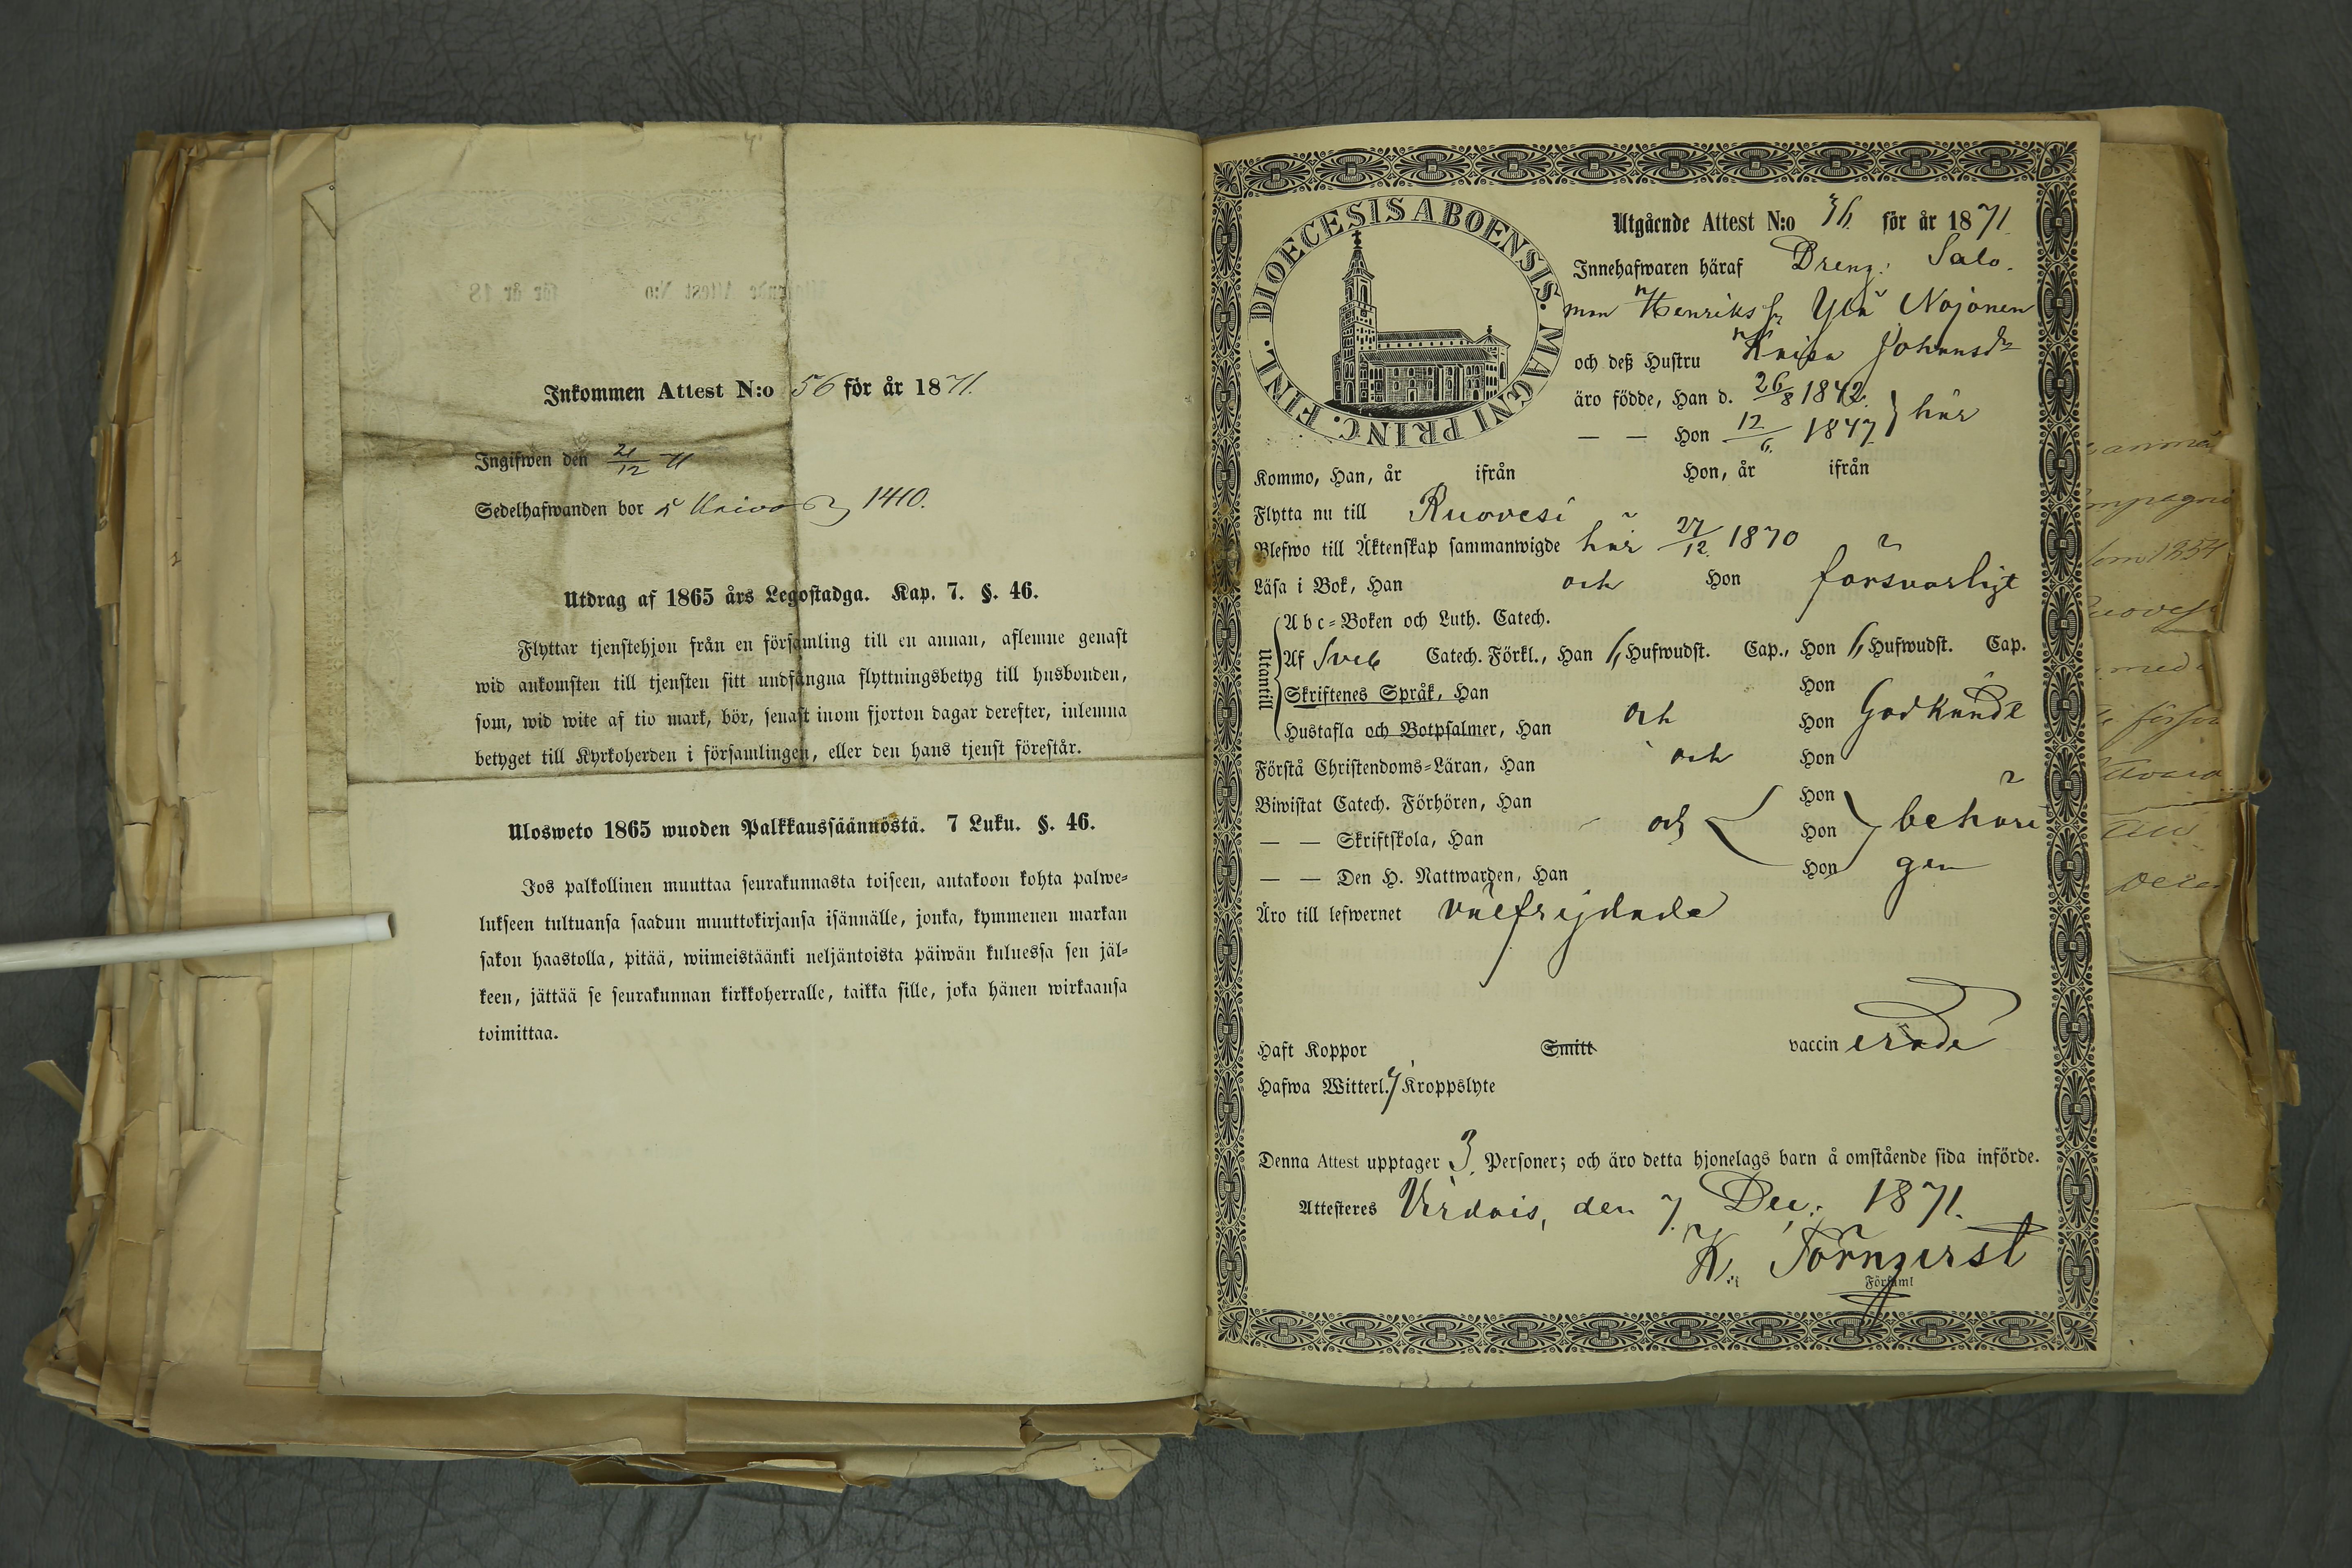 Inkommen Attest N:o 56 för år 1871.
Ingifwen den 21/12 71
Sedelhafwanden bor å 1410.
Utdrag af 1865 års Legostadga. Kap. 7. §. 46.
Flyttar tjenstehjon från en församling till en annan, aflemne genast
wid ankomsten till tjensten sitt undfångna flyttningsbetyg till husbonden,
som, wid wite af tio mark, bör, senast inom fjorton dagar derefter, inlemna
betyget till Kyrkoherden i församlingen, eller den hans tjenst förestår.
Ulosweto 1865 wuoden Palkkaussäännöstä. 7 Luku. §. 46.
Jos palkollinen muuttaa seurakunnasta toiseen, antakoon kohta palwe-
lukseen tultuansa saadun muuttokirjansa isännälle, jonka, kymmenen markan
sakon haastolla, pitää, wiimeistäänki neljäntoista päiwän kuluessa sen jäl-
keen, jättää se seurakunnan kirkkoherralle, taikka sille, joka hänen wirkaansa
toimittaa.
DIOECESIS ABOENSIS. MAGNI PRINC. FINL.
Utgående Attest N:o 36. för år 1871
Innehafwaren häraf Dreng. Salo-
mon Henriks sn Ylä Nojonen
och deß Hustru Kaisa Johansdr
äro födde, Han d. 26/8 1842.
— — Hon 12/6 1847 } här
Kommo, Han, år ifrån Hon, år ifrån
Flytta nu till Ruovesi
Blefwo till Äktenskap sammanwigde här 27/12 1870
Läsa i Bok, Han och Hon försvarligt
Utantill
Abc-Boken och Luth. Catech.
Af Sveb Catech. Förkl., Han 6 Hufwudst. Cap., Hon 6 Hufwudst. Cap.
Skriftenes Språk, Han Hon
Hustafla och Botpsalmer, Han och Hon Godkände
Förstå Christendoms-Läran, Han och Hon
Biwistat Catech. Förhören, Han Hon
— — Skriftskola, Han och Hon behöri
— — Den H. Nattwarden, Han Hon gen
Äro till lefwernet välfrejdade
Haft Koppor Smitt vaccinerade
Hafwa Witterl. Kroppslyte
Denna Attest upptager 3 Personer; och äro detta hjonelags barn å omstående sida införde.
Attesteres Virdois, den 7. Dec. 1871.
K. Törnqvist
Församl